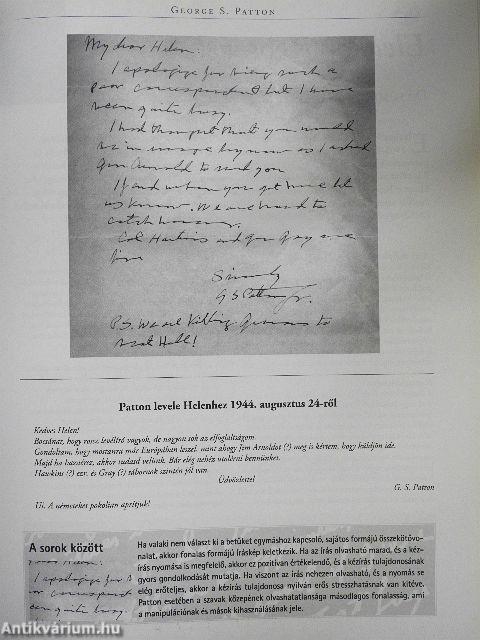 GEORGE S. PATTON
My dear Helen:
I apologize for being such a
poor correspondent but I have
been quite busy.
I had thought that you would
be in                 by now as I asked
Gen Arnold to send you
If and when you get here let
us know. We are hard to
catch however.
Col Harkins and Gen Gay are
fine
Sincerely
G S Patton Jr.
P.S. We are killing Germans to
beat Hell!
Patton levele Helenhez 1944. augusztus 24-ről
Kedves Helen!
Bocsánat, hogy rossz levélíró vagyok, de nagyon sok az elfoglaltságom.
Gondoltam, hogy mostanra már Európában leszel, mint ahogy Jim Arnoldot (?) meg is kértem, hogy küldjön ide.
Majd ha hazaérsz, akkor tudasd velünk. Bár elég nehéz utolérni bennünket.
Hawkins (?) ezr. és Gray (?) tábornok szintén jól van.
Üdvözlettel
G. S. Patton
Ui. A németeket pokolian aprítjuk!
A sorok között
My dear Helen:
I apologize for
poor correspond
been quite busy.
Ha valaki nem választ ki a betűket egymáshoz kapcsoló, sajátos formájú összekötővo-
nalat, akkor fonalas formájú íráskép keletkezik. Ha az írás olvasható marad, és a kéz-
írás nyomása is megfelelő, akkor ez pozitívan értékelendő, és a kézírás tulajdonosának
gyors gondolkodását mutatja. Ha viszont az írás nehezen olvasható, és a nyomás se
elég erőteljes, akkor a kézírás tulajdonosa nyilván erős stresszhatásnak van kitéve.
Patton esetében a szavak közepének olvashatatlansága másodlagos fonalasság, ami
a manipulációnak és mások kihasználásának jele.
Antikvárium.hu